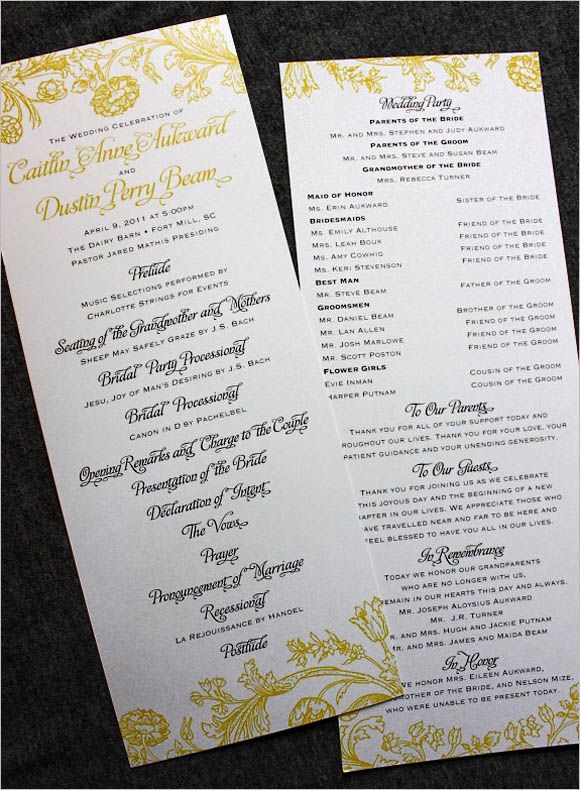 The Wedding Celebration of
Caitlin Anne Aukward
and
Dustin Perry Beam
April 9, 2011 at 5:00pm
The Dairy Barn • Fort Mill, SC
Pastor Jared Mathis Presiding
Prelude
Music Selections performed by
Charlotte Strings for Events
Seating of the Grandmother and Mothers
Sheep May Safely Graze by J.S. Bach
Bridal Party Processional
Jesu, Joy of Man's Desiring by J.S. Bach
Bridal Processional
Canon in D by Pachelbel
Opening Remarks and Charge to the Couple
Presentation of the Bride
Declaration of Intent
The Vows
Prayer
Pronouncement of Marriage
Recessional
La Rejouissance by Handel
Postlude
Wedding Party
Parents of the Bride
Mr. and Mrs. Stephen and Judy Aukward
Parents of the Groom
Mr. and Mrs. Steve and Susan Beam
Grandmother of the Bride
Mrs. Rebecca Turner
Maid of Honor
Ms. Erin Aukward Sister of the Bride
Bridesmaids
Ms. Emily Althouse Friend of the Bride
Mrs. Leah Bouk Friend of the Bride
Ms. Amy Cowhig Friend of the Bride
Ms. Keri Stevenson Friend of the Bride
Best Man
Mr. Steve Beam Father of the Groom
Groomsmen
Mr. Daniel Beam Brother of the Groom
Mr. Lan Allen Friend of the Groom
Mr. Josh Marlowe Friend of the Groom
Mr. Scott Poston Friend of the Groom
Flower Girls
Evie Inman Cousin of the Groom
Harper Putnam Cousin of the Groom
To Our Parents
Thank you for all of your support today and
roughout our lives. Thank you for your love, your
patient guidance and your unending generosity.
To Our Guests
Thank you for joining us as we celebrate
this joyous day and the beginning of a new
hapter in our lives. We appreciate those who
ave travelled near and far to be here and
feel blessed to have you all in our lives.
In Remembrance
Today we honor our grandparents
who are no longer with us,
remain in our hearts this day and always.
Mr. Joseph Aloysius Aukward
Mr. J.R. Turner
Mr. and Mrs. Hugh and Jackie Putnam
Mr. and Mrs. James and Maida Beam
In Honor
we honor Mrs. Eileen Aukward,
dmother of the Bride, and Nelson Mize,
who were unable to be present today.